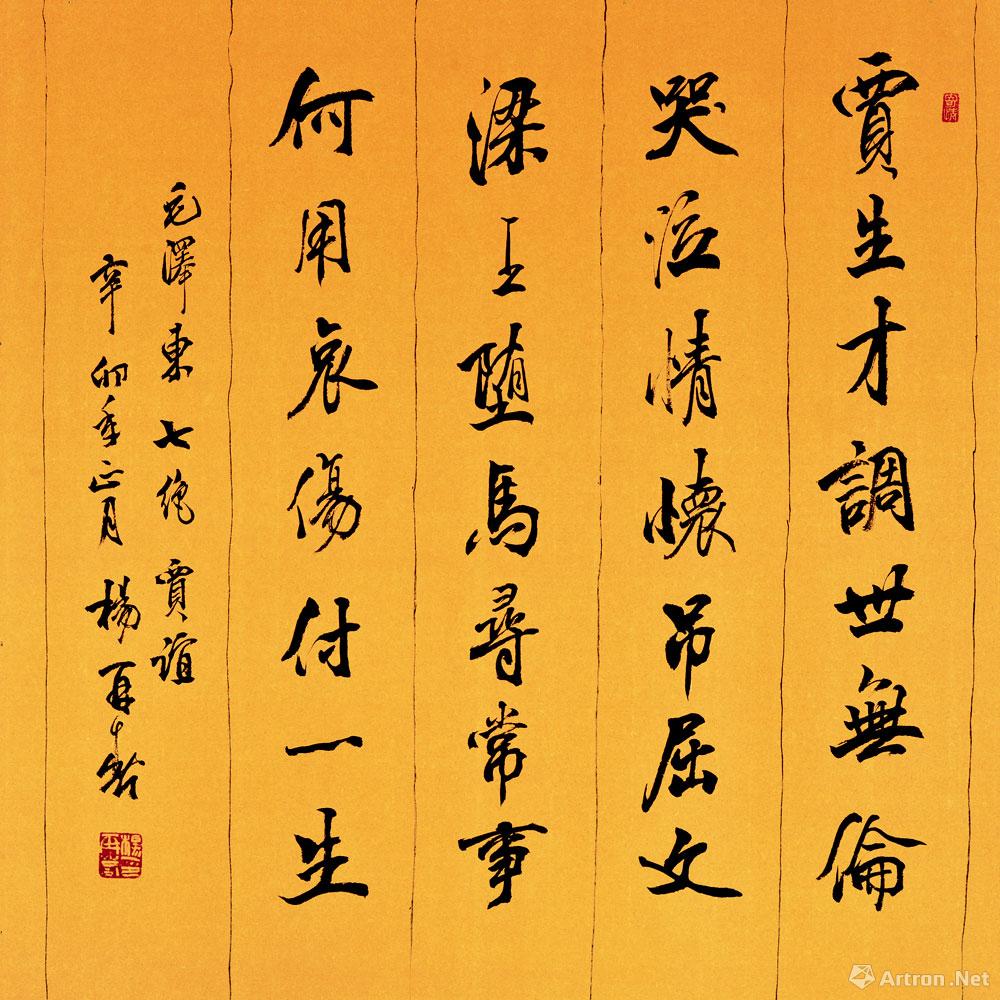 賈生才調世無倫
哭泣情懷吊屈文
梁王堕馬尋常事
何用哀傷付一生
毛澤東七絶 賈誼
辛卯年正月 楊再春
Artron.Net